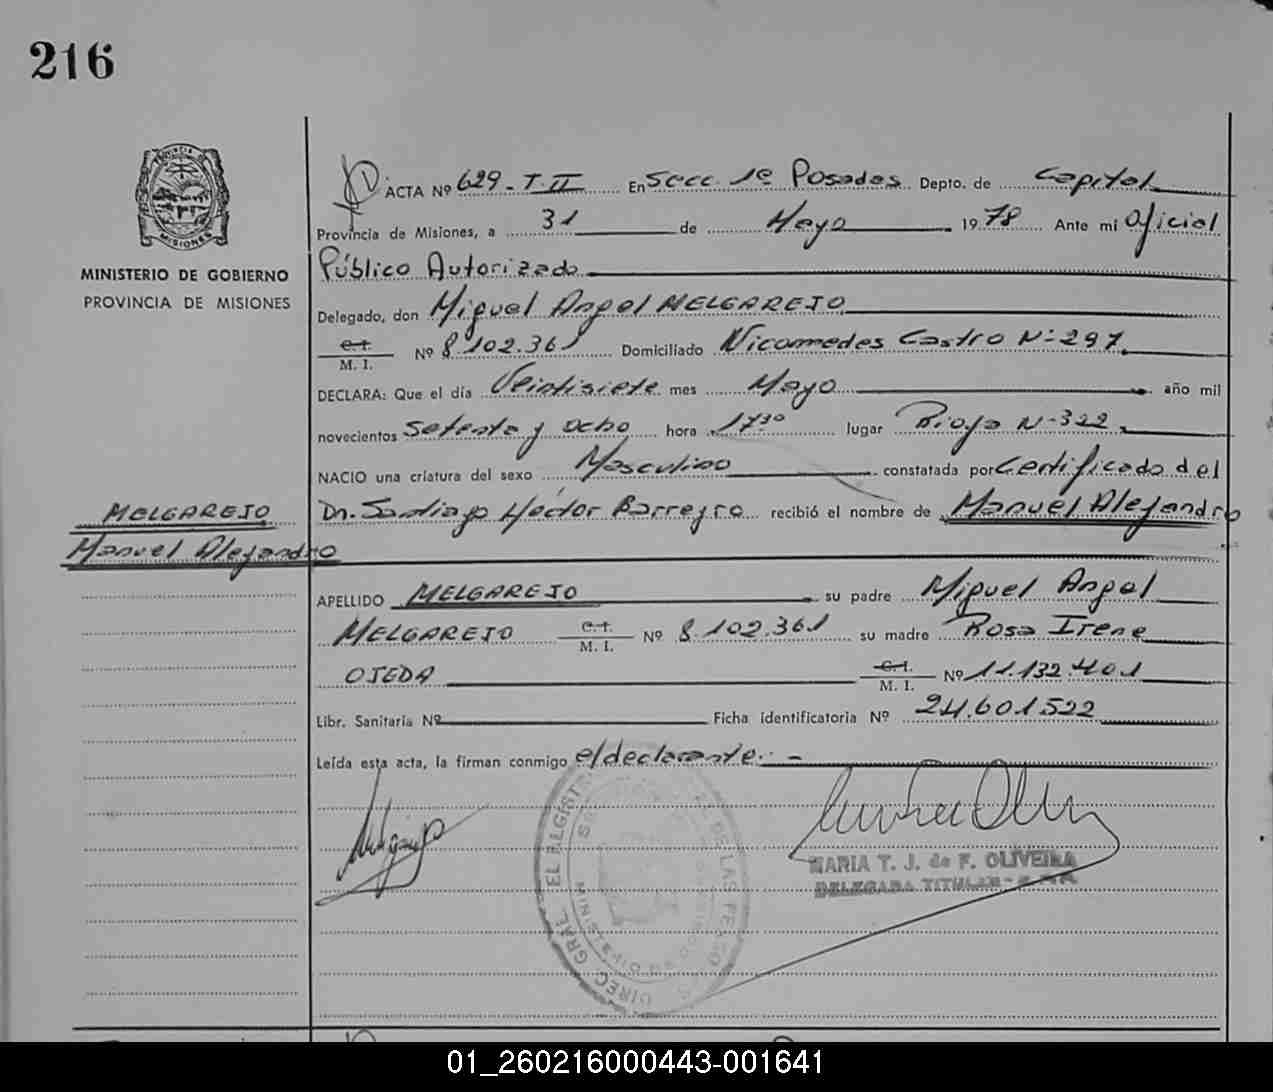 216
PROVINCIA DE
MISIONES
MINISTERIO DE GOBIERNO
PROVINCIA DE MISIONES
ACTA Nº 629 - T. II En Secc. 1ª Posadas Depto. de Capital
Provincia de Misiones, a 31 de Mayo 1978 Ante mi Oficial
Público Autorizado
Delegado, don Miguel Angel MELGAREJO
C. I.
M. I. Nº 8.102.361 Domiciliado Nicomedes Castro Nº 297
DECLARA: Que el día Veintisiete mes Mayo año mil
novecientos setenta y ocho hora 17³⁰ lugar Rioja Nº 322
NACIO una criatura del sexo Masculino constatada por Certificado del
Dr. Santiago Héctor Barreyro recibió el nombre de Manuel Alejandro
MELGAREJO
Manuel Alejandro
APELLIDO MELGAREJO su padre Miguel Angel
MELGAREJO C. I.
M. I. Nº 8.102.361 su madre Rosa Irene
OJEDA C. I.
M. I. Nº 11.132.401
Libr. Sanitaria Nº Ficha identificatoria Nº 24.601.522
Leída esta acta, la firman conmigo el declarante. -
DIREC. GRAL. EL REGISTR DE LAS PERSO
MARIA T. J. de F. OLIVEIRA
DELEGADA TITULAR
01_260216000443-001641